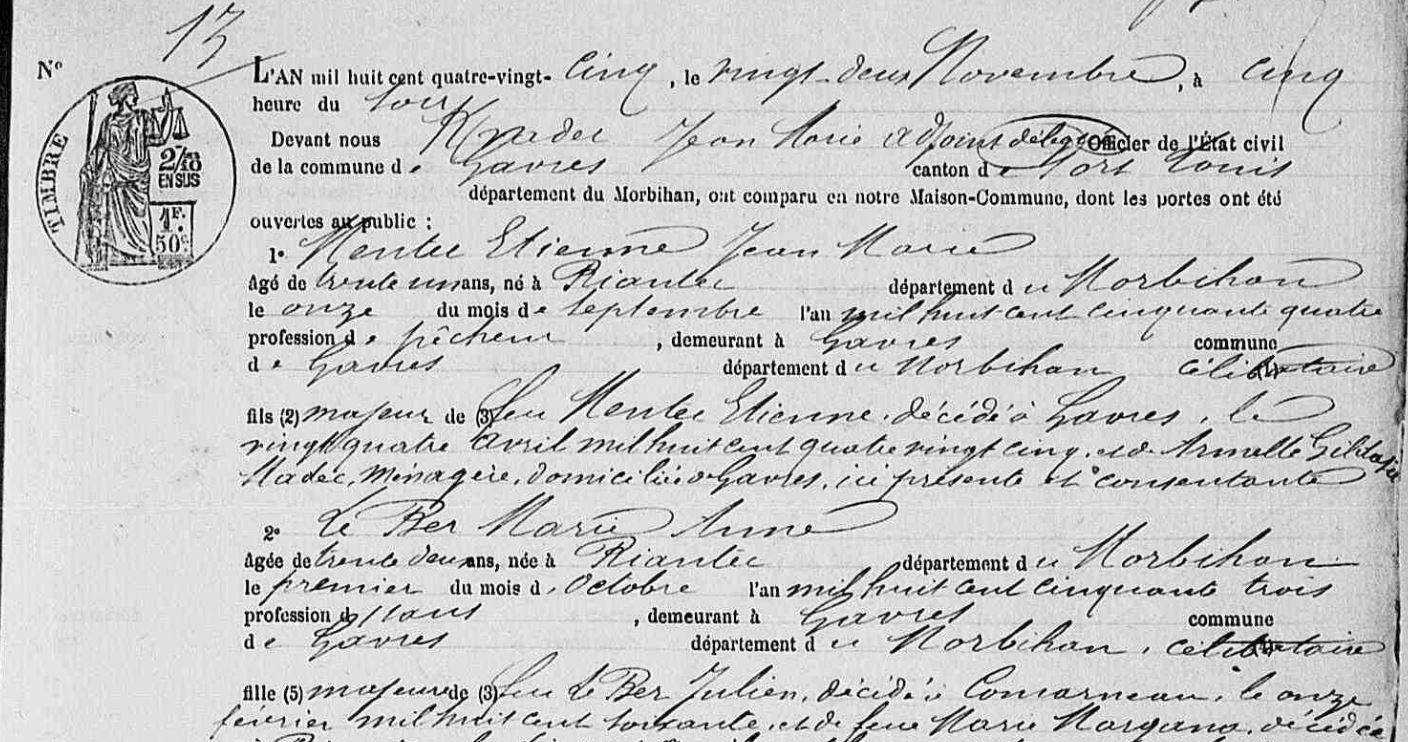 13
N°
TIMBRE
2/10
EN SUS
1F.
50c.
L'AN mil huit cent quatre-vingt- Cinq, le vingt-deux Novembre, à Cinq
heure du soir
Devant nous Jean Marie adjoint délégué Officier de l'État civil
de la commune de Gavres canton de Port Louis
département du Morbihan, ont comparu en notre Maison-Commune, dont les portes ont été
ouvertes au public :
1° Mentec Etienne Jean Marie
âgé de trente un ans, né à Riantec département du Morbihan
le onze du mois de Septembre l'an mil huit cent cinquante quatre
profession de pêcheur, demeurant à Gavres commune
de Gavres département du Morbihan célibataire
fils (2) majeur de (3) feu Mentec Etienne, décédé à Gavres, le
vingt quatre avril mil huit cent quatre vingt cinq, et d'Armelle
Madec, Ménagère, domiciliée à Gavres, ici présente et consentante
2° Le Ber Marie Anne
âgée de trente deux ans, née à Riantec département du Morbihan
le premier du mois d'Octobre l'an mil huit cent cinquante trois
profession d, demeurant à Gavres commune
de Gavres département du Morbihan, célibataire
fille (5) majeure de (3) feu Le Ber Julien, décédé à Concarneau, le onze
février mil huit cent soixante, et de feue Marie Margano, décédée